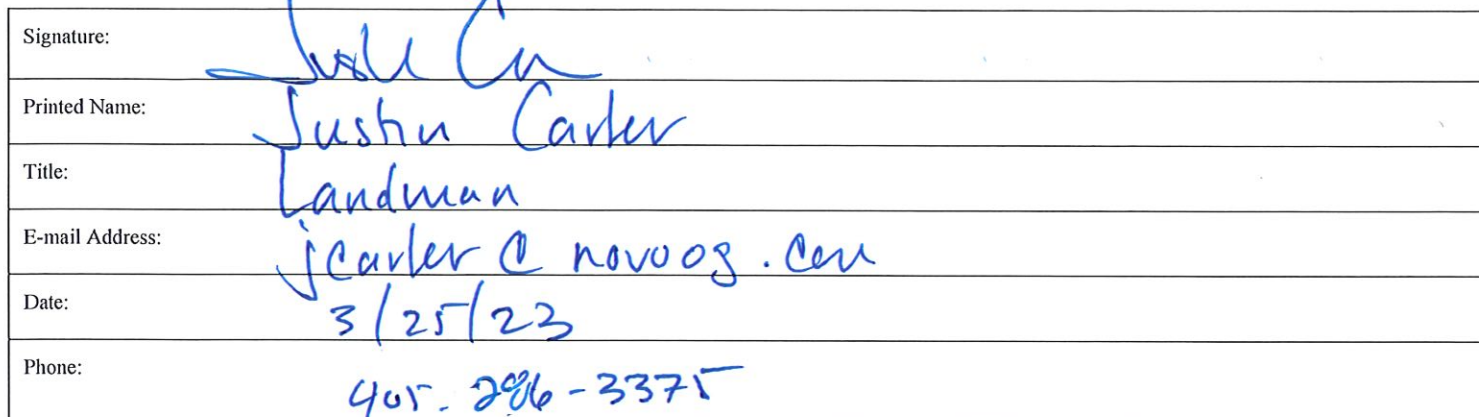 Signature:
Printed Name: Justin Carter
Title: Landman
E-mail Address: jcarter @ novoog.com
Date: 3/25/23
Phone: 405-286-3375